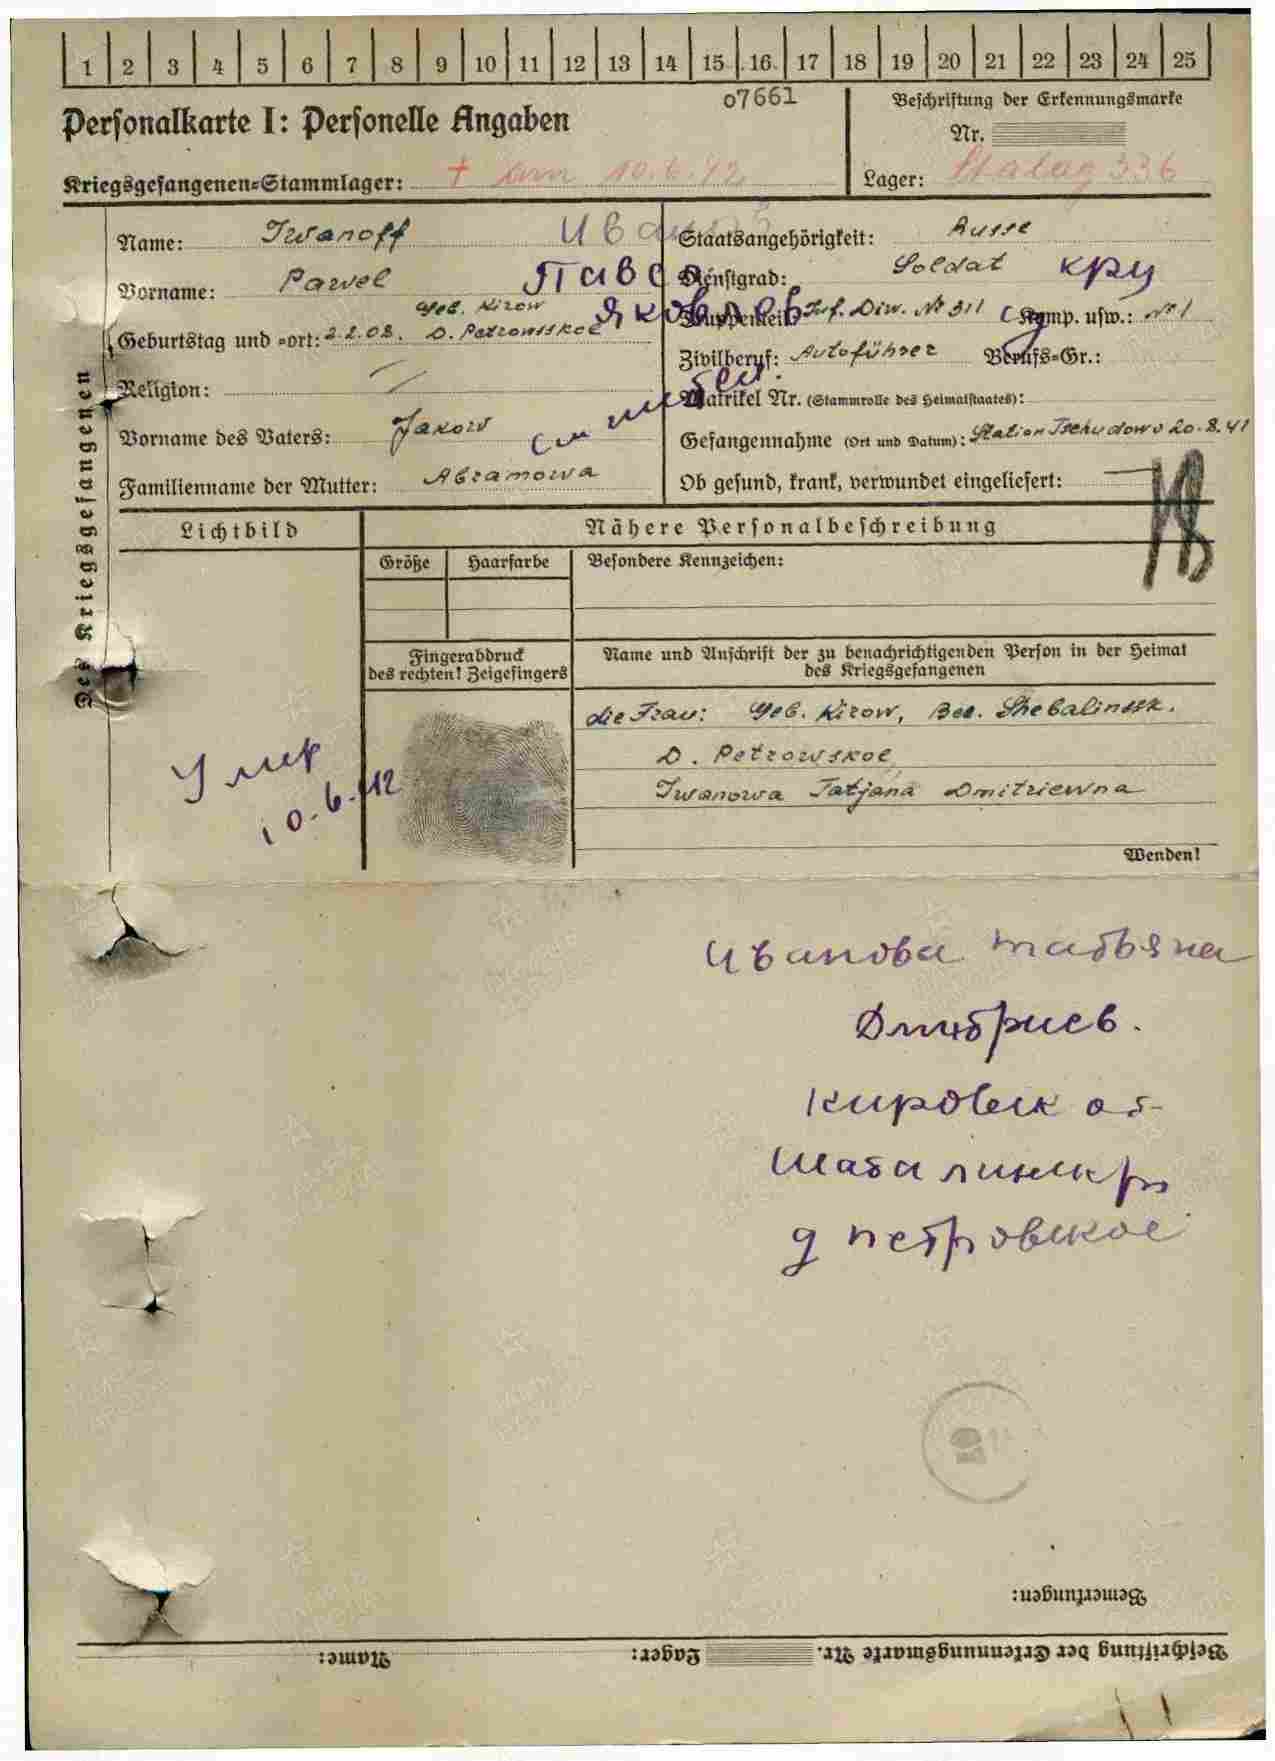 1 2 3 4 5 6 7 8 9 10 11 12 13 14 15 16 17 18 19 20 21 22 23 24 25
07661
Personalkarte I: Personelle Angaben
Beschriftung der Erkennungsmarke
Nr.
Kriegsgefangenen-Stammlager: + am 10.6.42
Lager: Stalag 336
Des Kriegsgefangenen
Name: Iwanoff Иванов
Vorname: Pawel Павел
Яковлев
Geburtstag und -ort: 2.2.08. Geb. Kirow D. Petrowsskoe
Religion:
Vorname des Vaters: Jakow
Familienname der Mutter: Abramowa
Staatsangehörigkeit: Russe
Dienstgrad: Soldat
Truppenteil: Inf. Diw. № 311 Komp. usw.: № 1
Zivilberuf: Autoführer Berufs-Gr.:
Matrikel Nr. (Stammrolle des Heimatstaates):
Gefangennahme (Ort und Datum): Station Tschudowo 20.8.41
Ob gesund, krank, verwundet eingeliefert:
Lichtbild
Nähere Personalbeschreibung
Größe Haarfarbe Besondere Kennzeichen:
Fingerabdruck
des rechten! Zeigefingers
Name und Anschrift der zu benachrichtigenden Person in der Heimat
des Kriegsgefangenen
die Frau: Geb. Kirow, Bez. Shebalinssk.
D. Petrowskoe
Iwanowa Tatjana Dmitriewna
Умер
10.6.42
Wenden!
Иванова Татьяна
Дмитриев.
Кировск об
Шабалинск р
д Петровское
Bemerkungen:
Beschriftung der Erkennungsmarke Nr. Lager: Name: